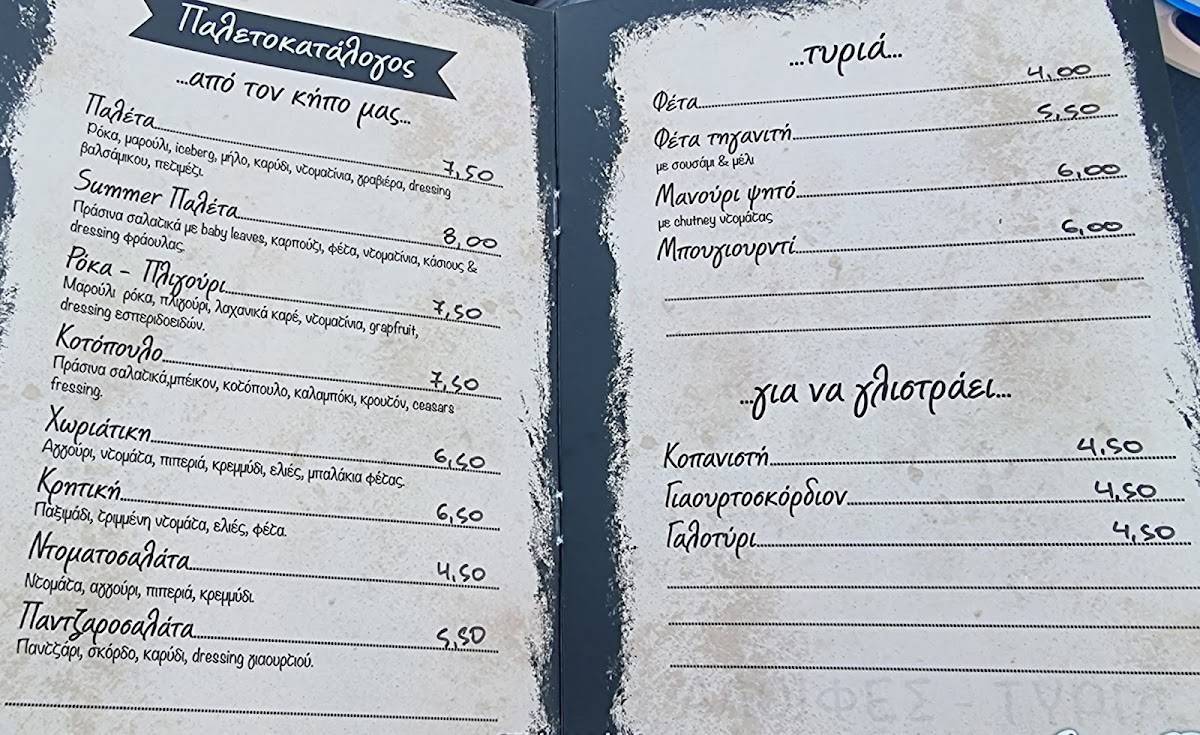 Παλετοκατάλογος
...από τον κήπο μας...
Παλέτα 7,50
Ρόκα, μαρούλι, iceberg, μήλο, καρύδι, ντοματίνια, γραβιέρα, dressing
βαλσάμικου, πετιμέζι.
Summer Παλέτα 8,00
Πράσινα σαλατικά με baby leaves, καρπούζι, φέτα, ντοματίνια, κάσιους &
dressing φράουλας.
Ρόκα - Πλιγούρι 7,50
Μαρούλι ρόκα, πλιγούρι, λαχανικά καρέ, ντοματίνια, grapfruit,
dressing εσπεριδοειδών.
Κοτόπουλο 7,50
Πράσινα σαλατικά,μπέικον, κοτόπουλο, καλαμπόκι, κρουτόν, ceasars
fressing.
Χωριάτικη 6,50
Αγγούρι, ντομάτα, πιπεριά, κρεμμύδι, ελιές, μπαλάκια φέτας.
Κρητική 6,50
Παξιμάδι, τριμμένη ντομάτα, ελιές, φέτα.
Ντοματοσαλάτα 4,50
Ντομάτα, αγγούρι, πιπεριά, κρεμμύδι
Παντζαροσαλάτα 5,50
Παντζάρι, σκόρδο, καρύδι, dressing γιαουρτιού.
...τυριά...
Φέτα 4,00
Φέτα τηγανιτή 5,50
με σουσάμι & μέλι
Μανούρι ψητό 6,00
με chutney ντομάτας
Μπουγιουρντί 6,00
...για να γλιστράει...
Κοπανιστή 4,50
Γιαουρτοσκόρδιον 4,50
Γαλοτύρι 4,50